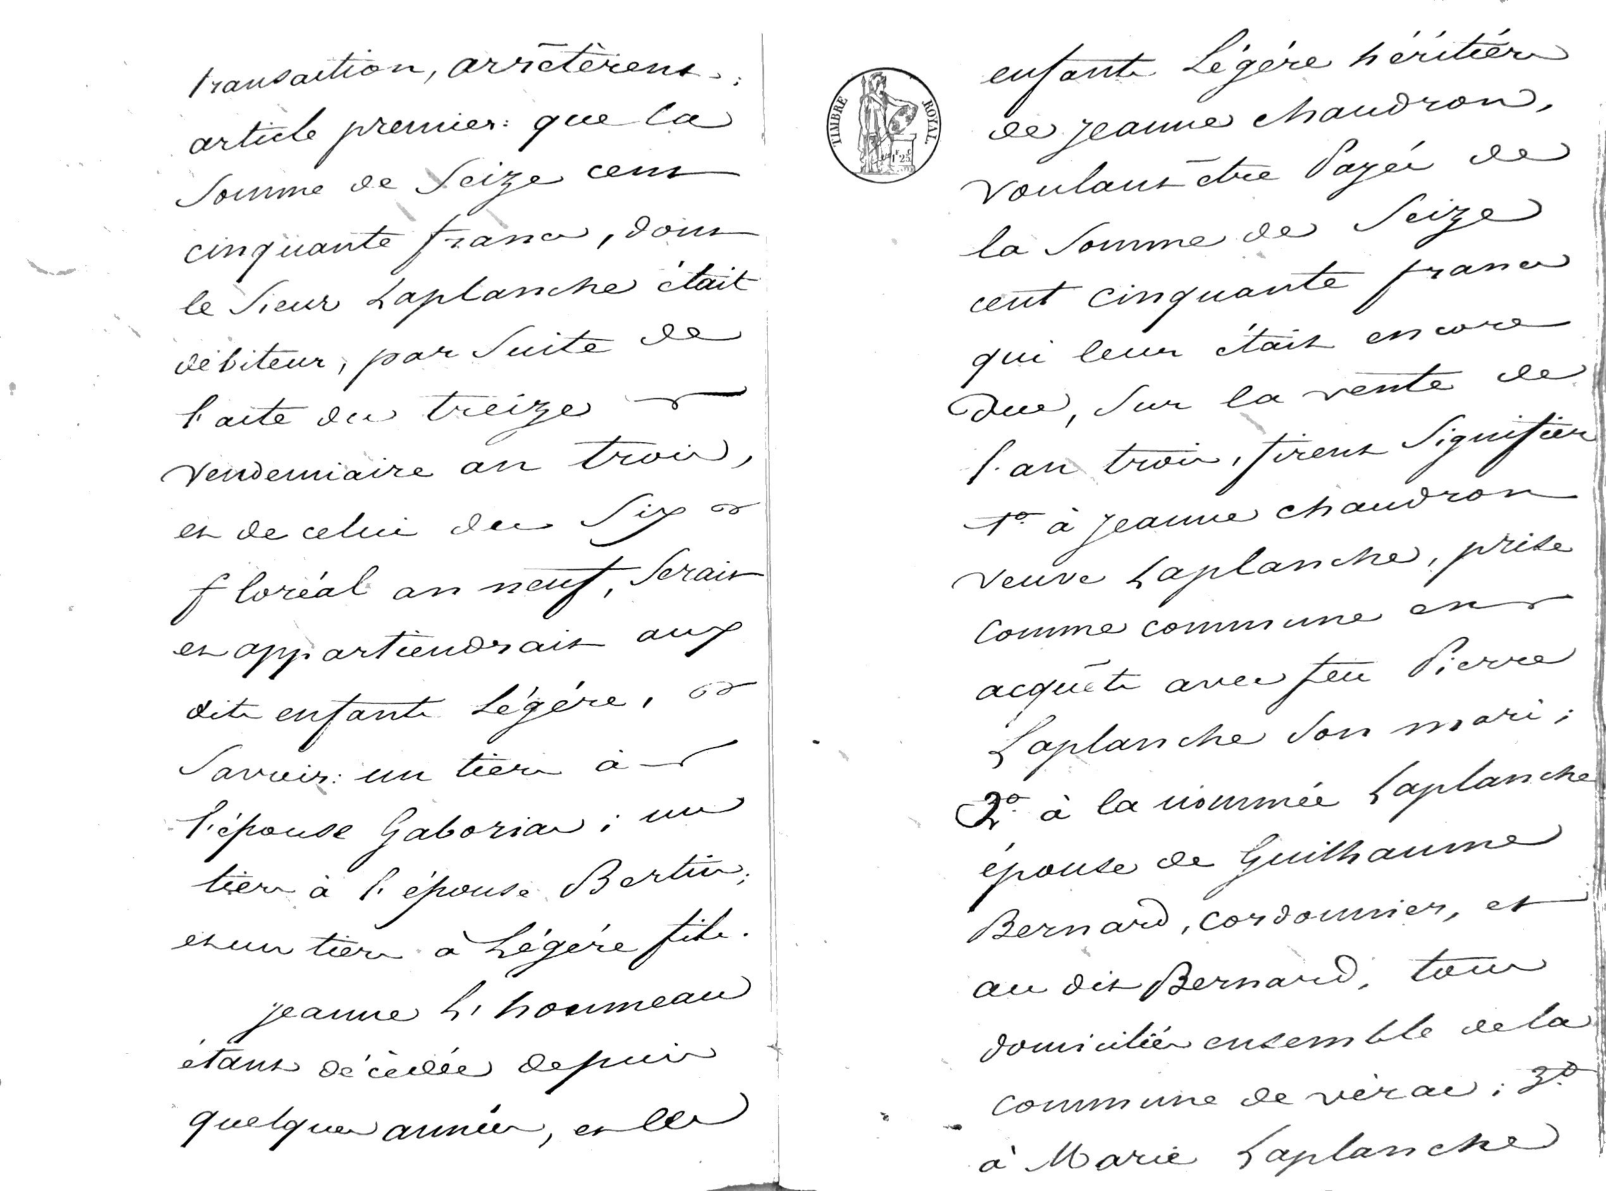 transaction, arrêtèrent :
article premier : que la
Somme de Seize cent
cinquante francs, dont
le Sieur Laplanche était
débiteur, par Suite de
l'acte du treize
Vendemiaire an trois,
et de celui du Six
floréal an neuf, Serait
et appartiendrait aux
dits enfants Légére,
Savoir : un tiers à
l'épouse Gaboriau ; un
tiers à l'épouse Bertin ;
et un tiers à Légére fils.
Jeanne L'houmeau
étant décédée depuis
quelques années, et les
TIMBRE ROYAL
1f 25c
enfants Légére héritiers
de Jeanne chaudron,
voulant être Payés de
la Somme de Seize
cent cinquante francs
qui leur était encore
due, Sur la vente de
l'an trois, firent Signifier
1º à Jeanne chaudron
veuve Laplanche, prise
comme commune en
acquêts avec feu Pierre
Laplanche Son mari ;
2º à la nommée Laplanche
épouse de Guilhaume
Bernard, cordonnier, et
au dit Bernard, tous
domiciliés ensemble de la
commune de vérac ; 3º
à Marie Laplanche